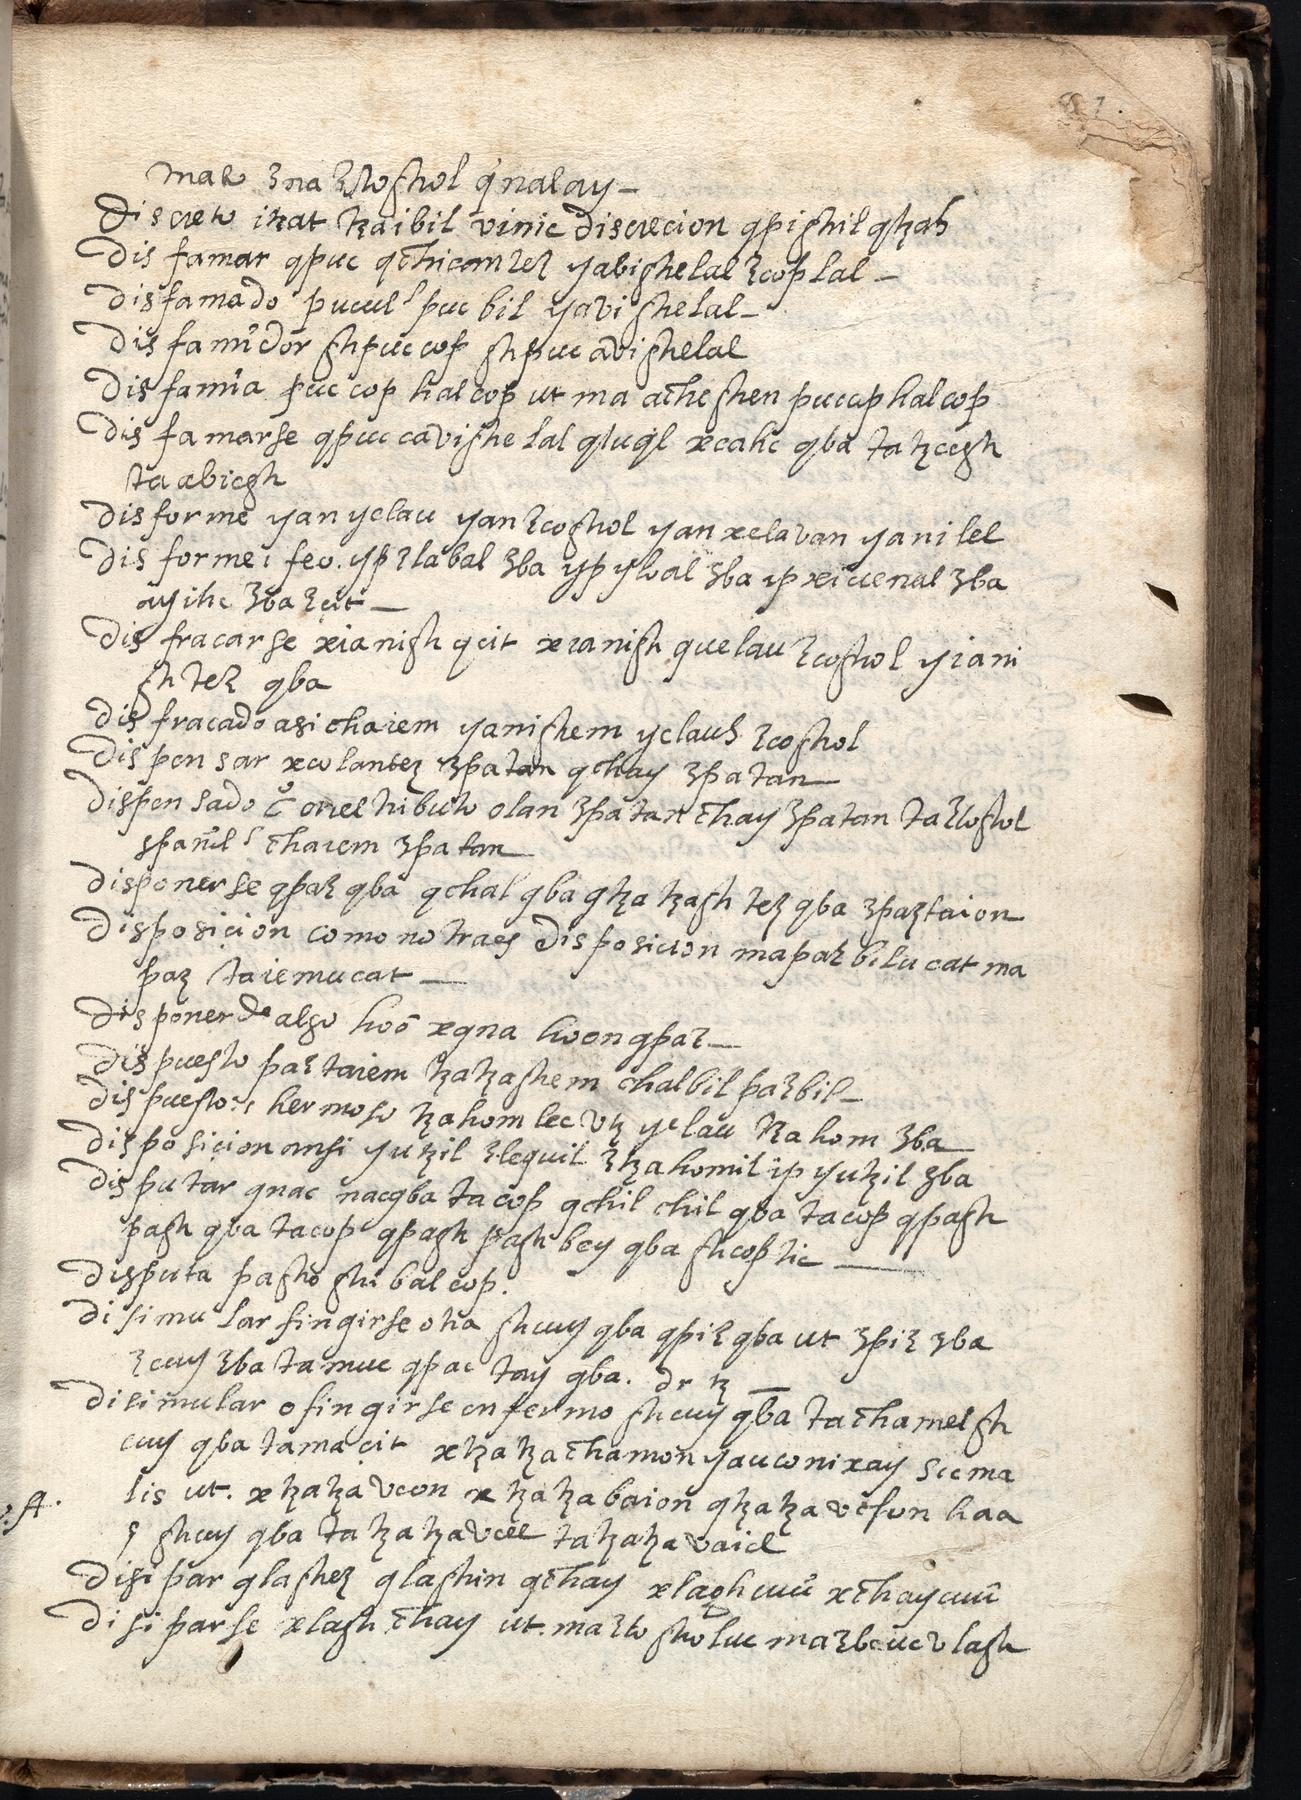 maꜫ ꜫna ꜫtoghol q̃nalay –
Discreto itzat tzaibil vinic discrecion qpighil qtzah
Disfamar qpuc qchicantez yabighelal ꜫcoplal –
Disfamado pucul l pucbil yavighelal –
Disfamador ghpuccop ghpucavighelal
Disfamia puccop halcop ut ma acheghen puccop halcop
Disfamarse qpuccavighelal qluql xcahc qba tatzcegh
ta abiegh
Disforme yanyelau yanꜫcoghol yanxelavan yanilel
Disforme i feo. ypꜫlabal ꜫba yp yloal ꜫba yp xicuenal ꜫba
ayihc ꜫba ꜫcit –
Disfracarse xianigh qcit xianigh quelau ꜫcoghol yiani
ghtez qba
Disfracado asi chaiem yanighem yelauh ꜫcoghol
Dispensar xcolantez ꜫpatan qchay ꜫpatan –
Dispensado c̃o en el tributo olan ꜫpatan chay ꜫpatan taꜫtoghol
spatnil l chaiem ꜫpatan –
Disponerse qpaꜫ qba qchal qba qtzatzagh tez qba ꜫpaꜫtaion
Disposicion como no traes disposicion mapaꜫbilucat ma
paꜫ taiemucat –
Disponer de algo hoõ xqna hoonqpaꜫ –
Dispuesto paꜫtaiem tzatzaghem chalbil paꜫbil –
Dispuesto: s hermoso tzahom lec utz yelau tzahom ꜫba
Disposicion ansi yutzil ꜫlequil ꜫtzahomil ip yutzil ꜫba
Disputar qnac nacqba tacop qchil chil qba tacop qpagh
pagh qba tacop qpagh pagh bey qba ghcoptic –
Disputa pagho ghibal cop.
Disimular fingirse otra ghcuy qba qpiꜫ qba ut ꜫpiꜫ ꜫba
ꜫcuy ꜫba tamuc qpac tay qba. dr tz –
Disimular o fingirse enfermo ghcuy qba tachamelgh
cuy qba tamacit xtzatzachamon yauconixay sicma
lis ut. xtzatzaucon xtzatzabaion qtzatza haa
s ghcuy qba tatzatzavcel tatzatzavaiel
Disipar qlaghez qlaghin qchay xlaghcuu xchaycuu
Disiparse xlagh chay ut. maꜫto gholuc